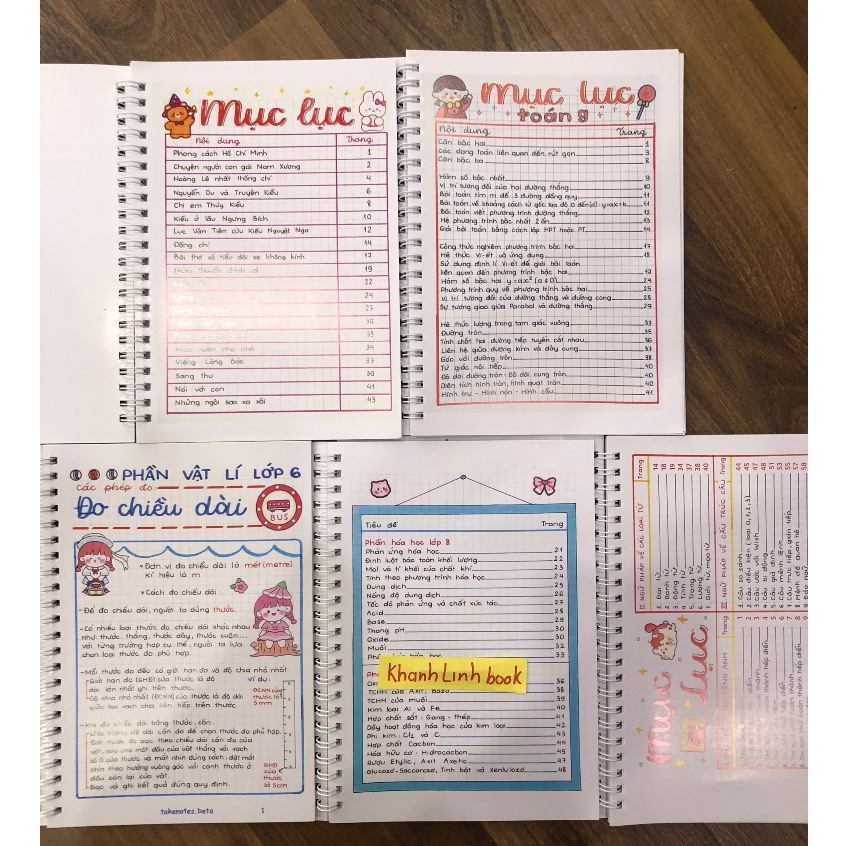 Mục lục
Nội dung Trang
Phong cách Hồ Chí Minh 1
Chuyện người con gái Nam Xương 2
Hoàng Lê nhất thống chí 4
Nguyễn Du và Truyện Kiều 6
Chị em Thúy Kiều 8
Kiều ở lầu Ngưng Bích 10
Lục Vân Tiên cứu Kiều Nguyệt Nga 12
Đồng chí 14
Bài thơ về tiểu đội xe không kính 17
Đoàn thuyền đánh cá 19
22
24
27
30
33
Mùa xuân nho nhỏ 34
Viếng Lăng Bác 37
Sang thu 39
Nói với con 41
Những ngôi sao xa xôi 43
Mục lục
toán 9
Nội dung Trang
Căn bậc hai 1
Các dạng toán liên quan đến rút gọn 3
Căn bậc ba 8
Hàm số bậc nhất 9
Vị trí tương đối của hai đường thẳng 10
Bài toán tìm m để 3 đường đồng quy 11
Bài toán về khoảng cách từ gốc tọa độ O đến (d): y=ax+b 11
Bài toán viết phương trình đường thẳng 12
Hệ phương trình bậc nhất 2 ẩn 13
Giải bài toán bằng cách lập HPT hoặc PT 14
Công thức nghiệm phương trình bậc hai 17
Hệ thức Vi-ét và ứng dụng 18
Sử dụng định lí Vi-ét để giải bài toán
liên quan đến phương trình bậc hai 19
Hàm số bậc hai y=ax² (a≠0) 24
Phương trình quy về phương trình bậc hai 25
Vị trí tương đối của đường thẳng và đường cong 28
Sự tương giao giữa Parabol và đường thẳng 29
Hệ thức lượng trong tam giác vuông 33
Đường tròn 35
Tính chất hai đường tiếp tuyến cắt nhau 36
Liên hệ giữa đường kính và dây cung 37
Góc với đường tròn 38
Tứ giác nội tiếp 40
Độ dài đường tròn - Độ dài cung tròn 40
Diện tích hình tròn, hình quạt tròn 40
Hình trụ - Hình nón - Hình cầu 41
PHẦN VẬT LÍ LỚP 6
Các phép đo:
Đo chiều dài
BUS
Đơn vị đo chiều dài là mét (metre)
kí hiệu là m
Cách đo chiều dài:
-Để đo chiều dài, người ta dùng thước.
-Có nhiều loại thước đo chiều dài khác nhau
như: thước thẳng, thước dây, thước cuộn...
với từng trường hợp cụ thể, người ta lựa
chọn loại thước đo phù hợp.
-Mỗi thước đo đều có giới hạn đo và độ chia nhỏ nhất.
Giới hạn đo (GHĐ) của thước là độ
dài lớn nhất ghi trên thước.
Độ chia nhỏ nhất (ĐCNN) của thước là độ dài
giữa hai vạch chia liên tiếp trên thước.
Ví dụ:
ĐCNN của
thước là
5 mm
GHĐ
của
thước
là 5cm
-Khi đo chiều dài bằng thước cần:
Ước lượng độ dài cần đo để chọn thước đo phù hợp.
Đặt thước đo dọc theo chiều dài cần đo của
vật, sao cho một đầu của vật thẳng với vạch
số 0 của thước và mắt nhìn đúng cách: đặt mắt
nhìn theo hướng vuông góc với cạnh thước ở
đầu còn lại của vật.
Đọc và ghi kết quả đúng quy định.
takenotes.beta 1
Tiêu đề Trang
Phần hóa học lớp 8
Phản ứng hóa học 21
Định luật bảo toàn khối lượng 22
Mol và tỉ khối của chất khí 23
Tính theo phương trình hóa học 24
Dung dịch 25
Nồng độ dung dịch 26
Tốc độ phản ứng và chất xúc tác 27
Acid 28
Base 29
Thang pH 30
Oxide 30
Muối 32
33
Khanh Linh book
36
TCHH của Axit, Bazơ 38
TCHH của muối 39
Kim loại Al và Fe 40
Hợp chất sắt: Gang - thép 41
Dãy hoạt động hóa học của kim loại 42
Phi kim: Cl2 và C 43
Hợp chất Cacbon 44
Hóa hữu cơ: Hidrocacbon 45
Rượu Etylic, Axit Axetic 47
Glucozơ-Saccarozơ, Tinh bột và Xenlulozơ 48
Mục lục
TIẾNG ANH Trang
II. NGỮ PHÁP VỀ CÁC LOẠI TỪ Trang
1. Đại từ 14
2. Danh từ 18
3. Động từ 31
4. Tính từ 34
5. Trạng từ 37
6. Lượng từ 38
7. Cách tách mạo từ 40
III. NGỮ PHÁP VỀ CẤU TRÚC CÂU Trang
1. Câu so sánh 44
2. Câu điều kiện (loại 0, 1, 2, 3) 45
3. Câu ước với Wish 47
4. Câu bị động 48
5. Câu giả định 51
6. Câu mệnh lệnh 53
7. Câu trực tiếp, gián tiếp 55
8. Mệnh đề quan hệ 57
58